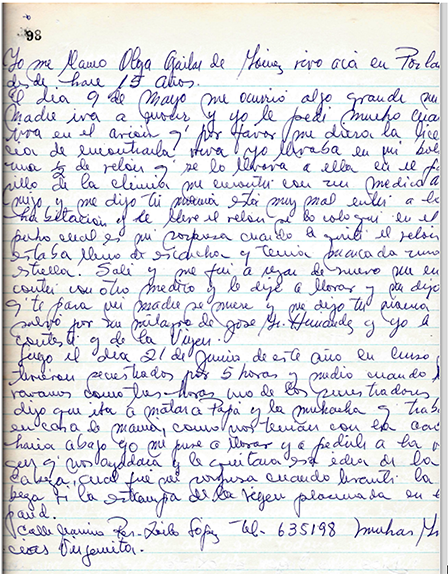 98
Yo me llamo Olga de Gómez vivo acá en Porla
desde hace 15 años.
El día 9 de Mayo me ocurrió algo grande mi
Madre iva a morir y yo le pedí mucho cuan
iva en el avión q' por favor me diera la lice
cia de encontrarla viva yo llevaba en mi bol
una de y se lo llevara a ella en el p
sillo de la clínica me encontré con un medico a
migo y me dijo tu mamá está muy mal entré a la
habitación y le llevé el y lo coloqué en el
pecho cual es mi sorpresa cuando le quité el
estaba lleno de escarcha y tenía marcada una
estrella. Salí y me fuí a rezar de nuevo me en
contré con otro medico y lo dejé a llorar y me dijo
q' te para mi madre se muere y me dijo tu mamá
salvó por un milagro de José G. Hernandez y yo le
contesté y de la Virgen.
luego el día 21 de Junio de este año en curso
secuestrados por 5 horas y media cuando
como tres horas uno de los secuestradores
dijo que iba a matar a papá y la muchacha q' traba
en casa de mamá, como nos tenían con la cara
hacia abajo yo me puse a llorar y a pedirle a la v
gen q' nos ayudara y le quitara esa idea de la
cabeza, cual fue mi sorpresa cuando levanté la
beza vi la estampa de la Virgen en
pared.
calle López Tel- 635198 muchas Gr
cias Virgencita.